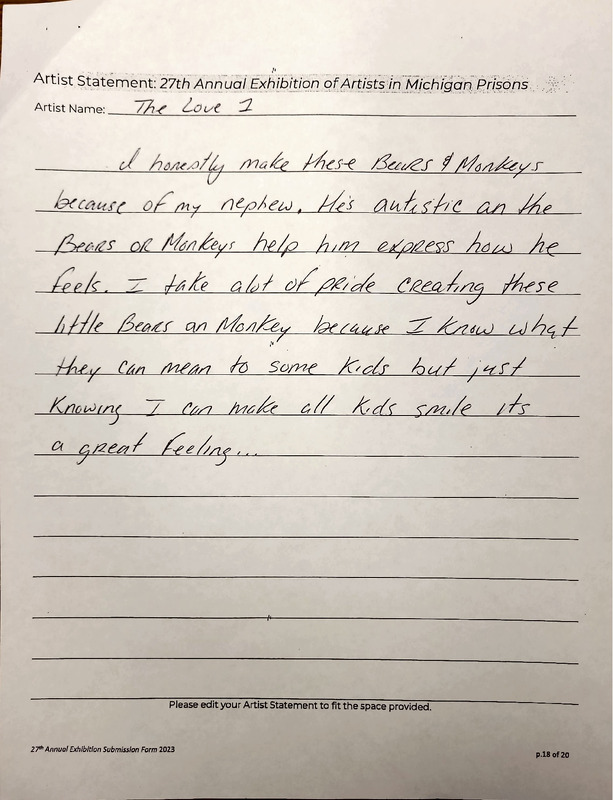 Artist Statement: 27th Annual Exhibition of Artists in Michigan Prisons
Artist Name: The Love 1
I honestly make these Bears & Monkeys
because of my nephew. He's autistic an the
Bears or Monkeys help him express how he
feels. I take alot of pride creating these
little Bears an Monkey because I know what
they can mean to some kids but just
knowing I can make all kids smile its
a great feeling...
Please edit your Artist Statement to fit the space provided.
27th Annual Exhibition Submission Form 2023
p.18 of 20